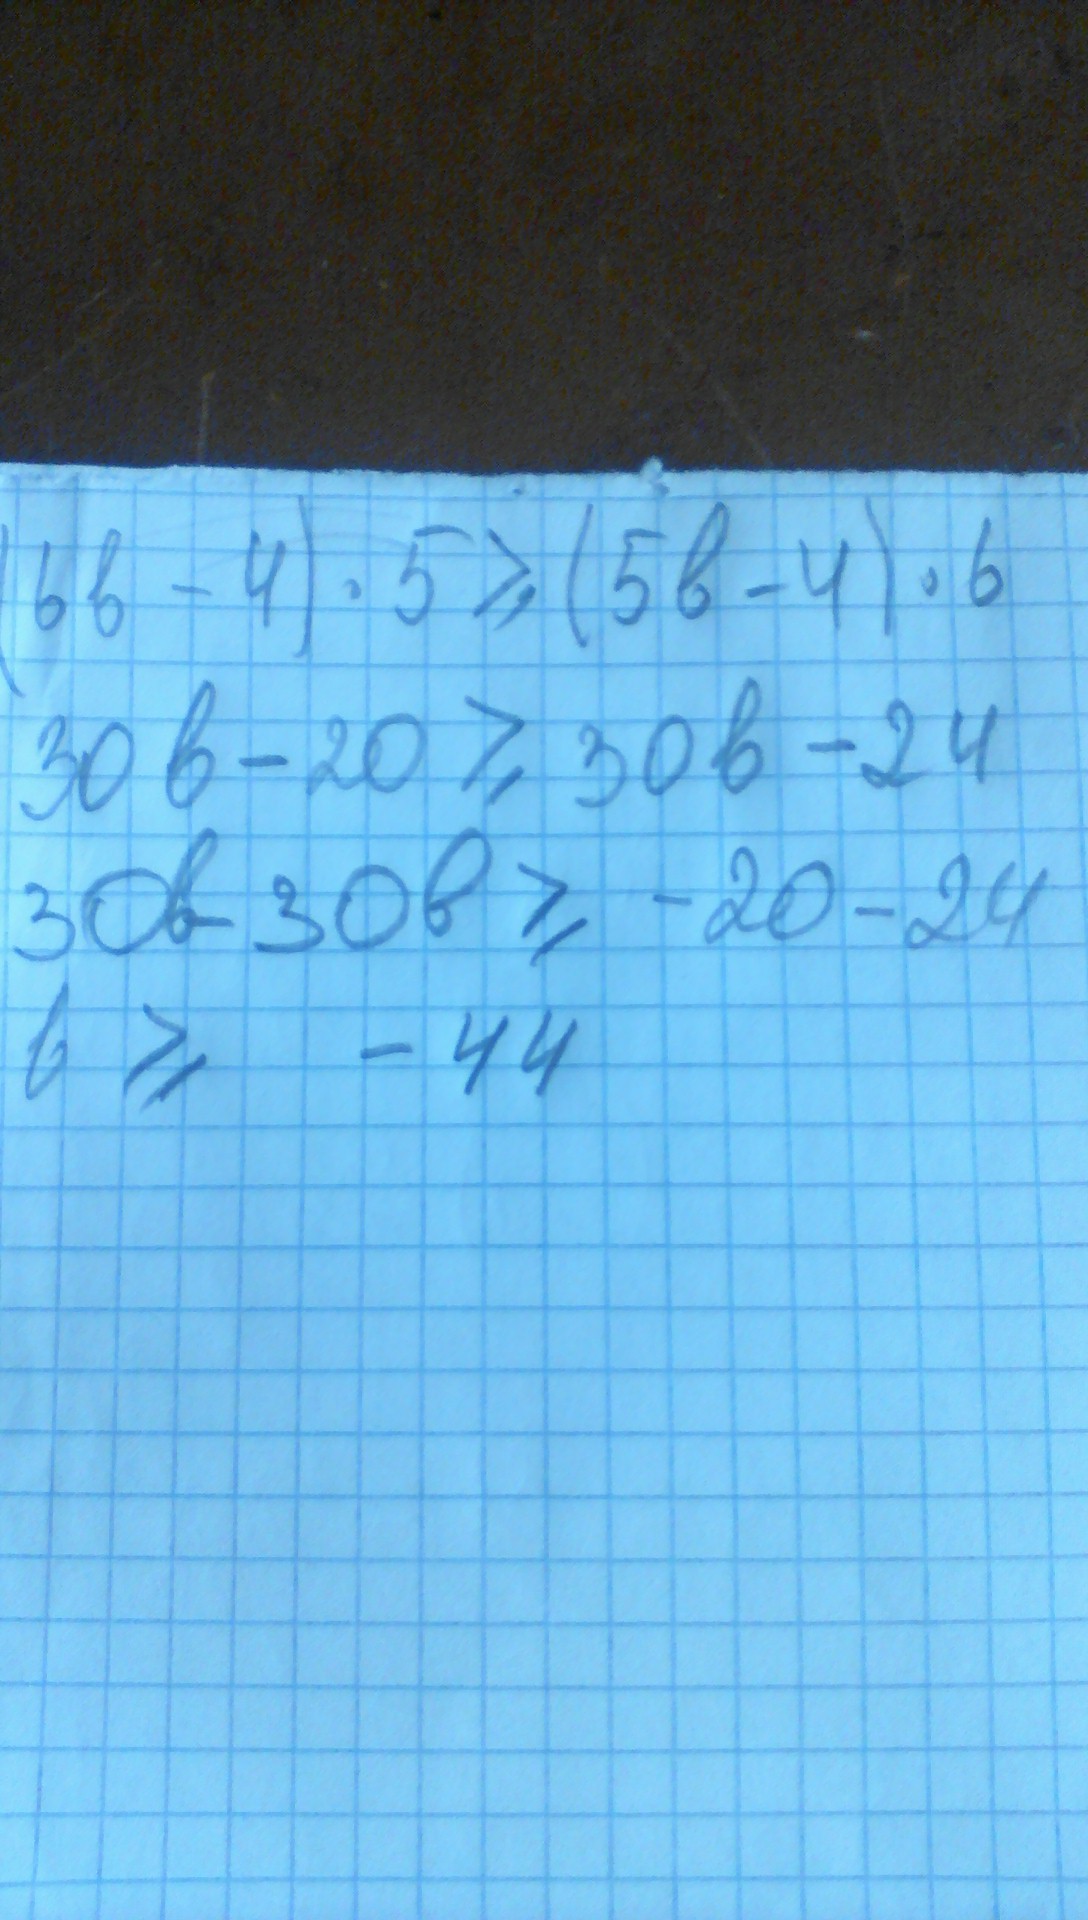 (6b - 4) · 5 ⩾ (5b - 4) · 6
30b - 20 ⩾ 30b - 24
30b - 30b ⩾ -20 - 24
b ⩾ - 44